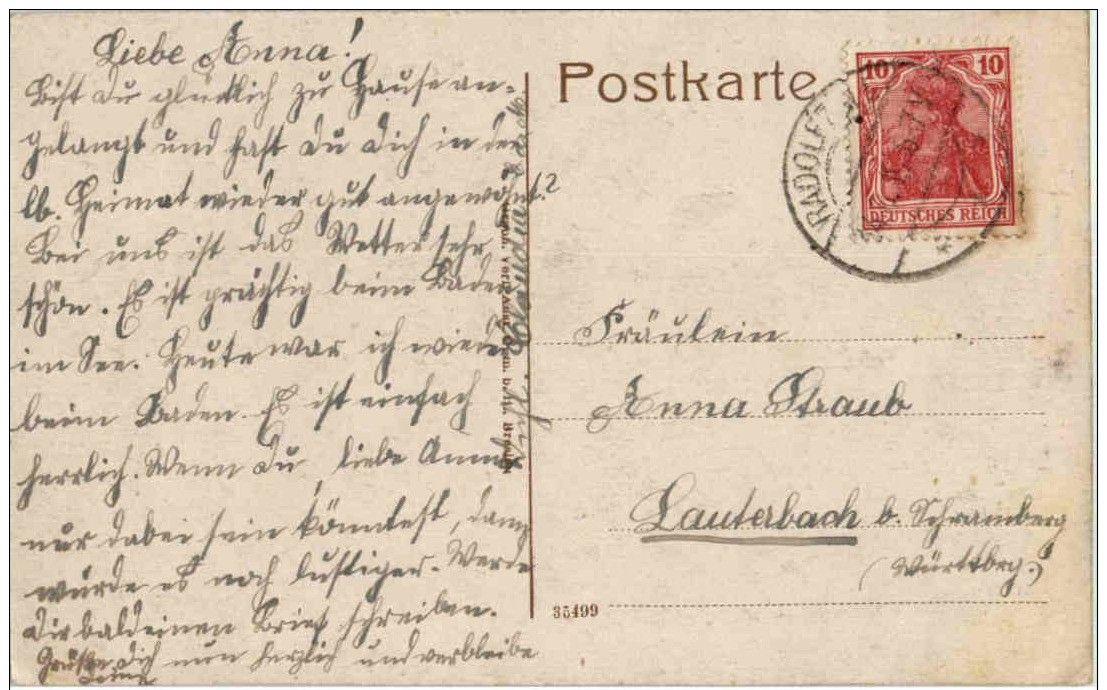 Liebe Anna!
Bist Du glücklich zu Hause an-
gelangt und hast Du Dich in der
lb. Heimat wieder gut angewöhnt?
Bei uns ist das Wetter sehr
schön. Es ist prächtig beim Baden
im See. Heute war ich wieder
beim Baden. Es ist einfach
herrlich. Wenn Du, liebe Anna
nur dabei sein könntest, dann
würde es noch lustiger. Werde
Dir bald einen Brief schreiben.
Grüße Dich nun herzlich und verbleibe
Deine
Postkarte
10 10
DEUTSCHES REICH
RADOLFZ
Fräulein
Anna Straub
Lauterbach b. Schramberg
(Württbrg.)
35499